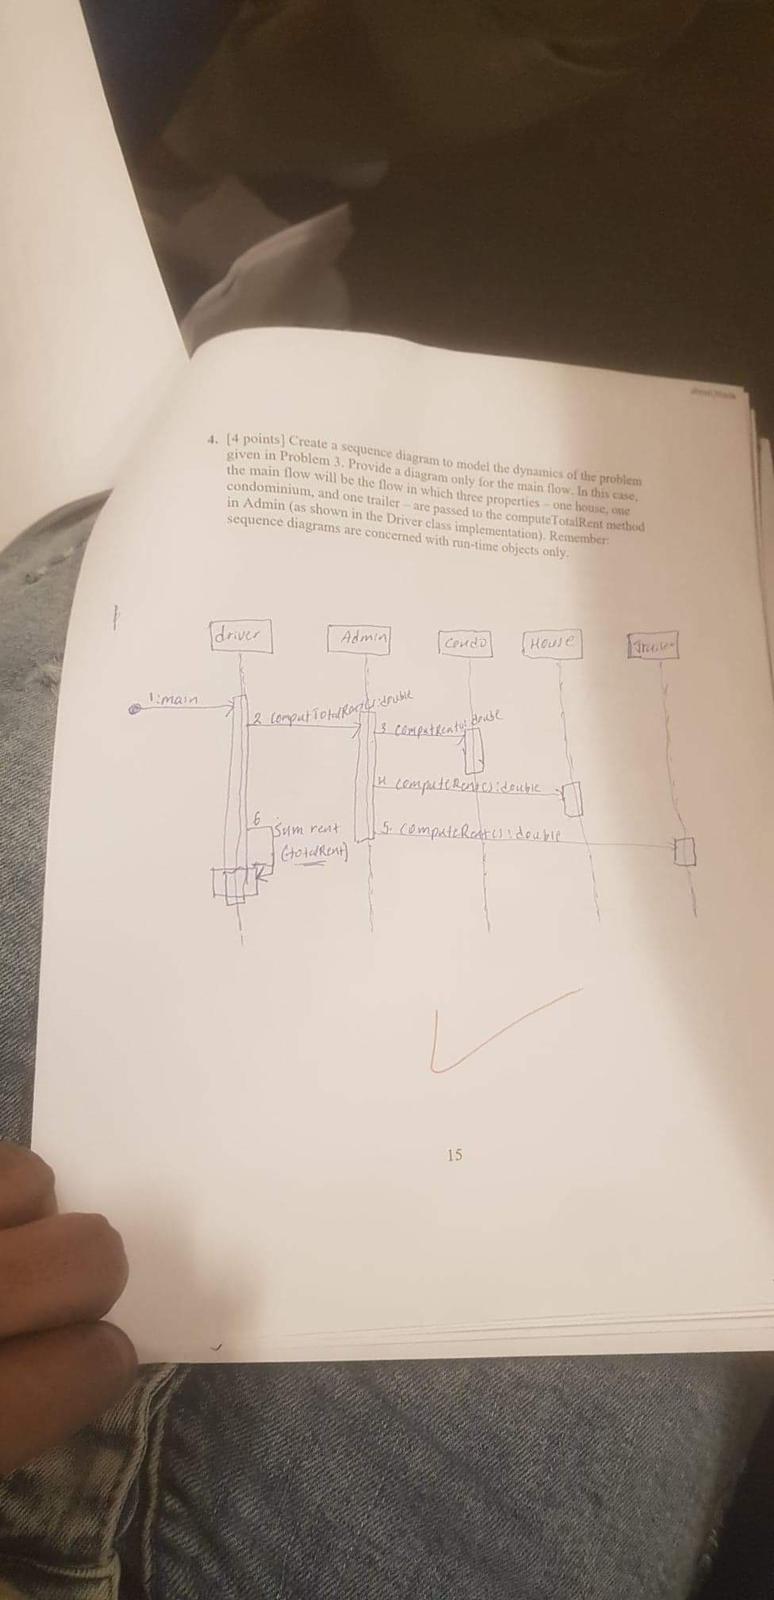 4. [4 points] Create a sequence diagram to model the dynamics of the problem
given in Problem 3. Provide a diagram only for the main flow. In this case,
the main flow will be the flow in which three properties – one house, one
condominium, and one trailer – are passed to the computeTotalRent method
in Admin (as shown in the Driver class implementation). Remember:
sequence diagrams are concerned with run-time objects only.
driver
Admin
Condo
House
Trailer
1:main
2 computTotalRent():double
3 computRent():double
4 computeRent():double
5. computeRent():double
6
Sum rent
(totalRent)
15